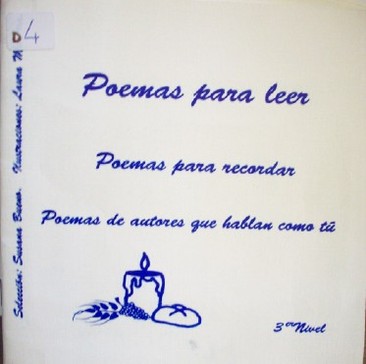 D
4
Poemas para leer
Poemas para recordar
Poemas de autores que hablan como tú
3er Nivel
Selección: Susana Bueno. Ilustraciones: Laura M